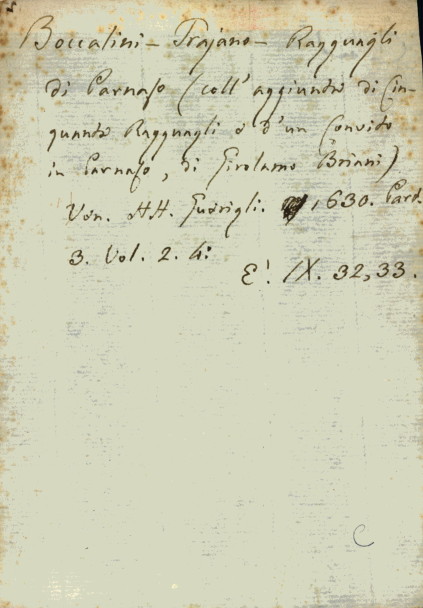 Boccalini - Trajano - Ragguagli
di Parnaso (coll' aggiunta di Cin-
quanta Ragguagli e d'un Convito
in Parnaso, di Girolamo Briani)
Ven. HH. Guerigli. 1630. Part.
3. Vol. 2. 4:
E! IX. 32, 33.
C